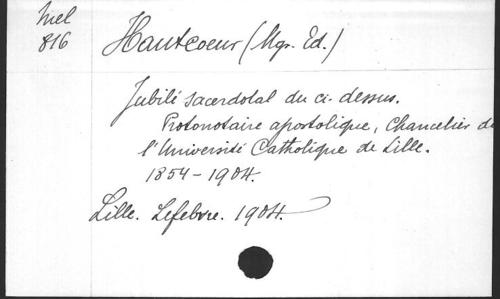 Mel
816
Hautcoeur (Mgr. Ed.)
Jubilé sacerdotal du ci-dessus.
Protonotaire apostolique, Chancelier de
l'Université Catholique de Lille.
1854-1904.
Lille. Lefebvre. 1904.